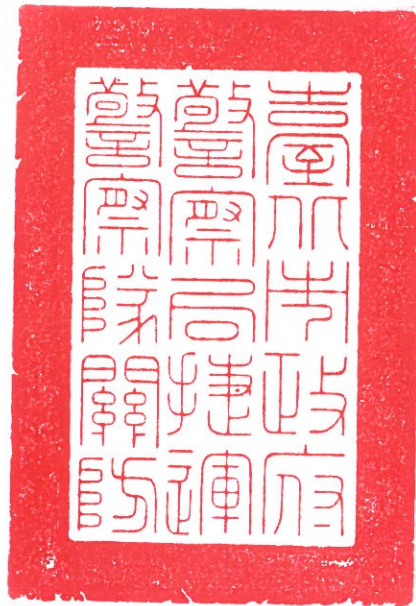 臺北市政府
警察局捷運
警察隊關防